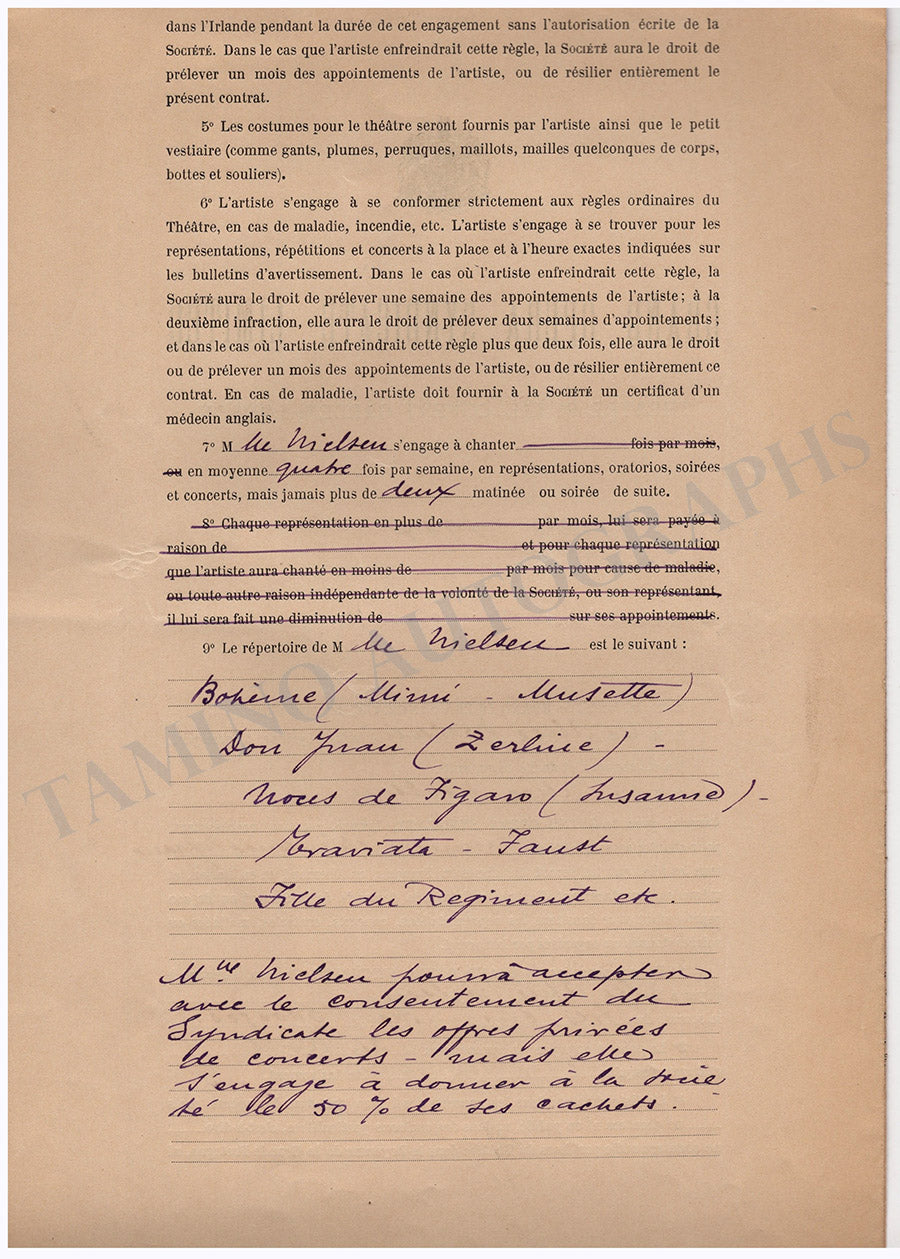 dans l'Irlande pendant la durée de cet engagement sans l'autorisation écrite de la
SOCIÉTÉ. Dans le cas que l'artiste enfreindrait cette règle, la SOCIÉTÉ aura le droit de
prélever un mois des appointements de l'artiste, ou de résilier entièrement le
présent contrat.
5° Les costumes pour le théâtre seront fournis par l'artiste ainsi que le petit
vestiaire (comme gants, plumes, perruques, maillots, mailles quelconques de corps,
bottes et souliers).
6° L'artiste s'engage à se conformer strictement aux règles ordinaires du
Théâtre, en cas de maladie, incendie, etc. L'artiste s'engage à se trouver pour les
représentations, répétitions et concerts à la place et à l'heure exactes indiquées sur
les bulletins d'avertissement. Dans le cas où l'artiste enfreindrait cette règle, la
SOCIÉTÉ aura le droit de prélever une semaine des appointements de l'artiste ; à la
deuxième infraction, elle aura le droit de prélever deux semaines d'appointements ;
et dans le cas où l'artiste enfreindrait cette règle plus que deux fois, elle aura le droit
ou de prélever un mois des appointements de l'artiste, ou de résilier entièrement ce
contrat. En cas de maladie, l'artiste doit fournir à la SOCIÉTÉ un certificat d'un
médecin anglais.
7° M lle Nielsen s'engage à chanter fois par mois,
ou en moyenne quatre fois par semaine, en représentations, oratorios, soirées
et concerts, mais jamais plus de deux matinée ou soirée de suite.
8° Chaque représentation en plus de par mois, lui sera payée à
raison de et pour chaque représentation
que l'artiste aura chanté en moins de par mois pour cause de maladie,
ou toute autre raison indépendante de la volonté de la SOCIÉTÉ, ou son représentant,
il lui sera fait une diminution de sur ses appointements.
9° Le répertoire de M lle Nielsen est le suivant :
Bohème (Mimi - Musette)
Don Juan (Zerline) -
Noces de Figaro (Susanne) -
Traviata - Faust
Fille du Regiment etc.
Mlle Nielsen pourra accepter
avec le consentement du
Syndicate les offres privées
de concerts - mais elle
s'engage à donner à la socié
té le 50 % de ses cachets.
TAMINO AUTOGRAPHS